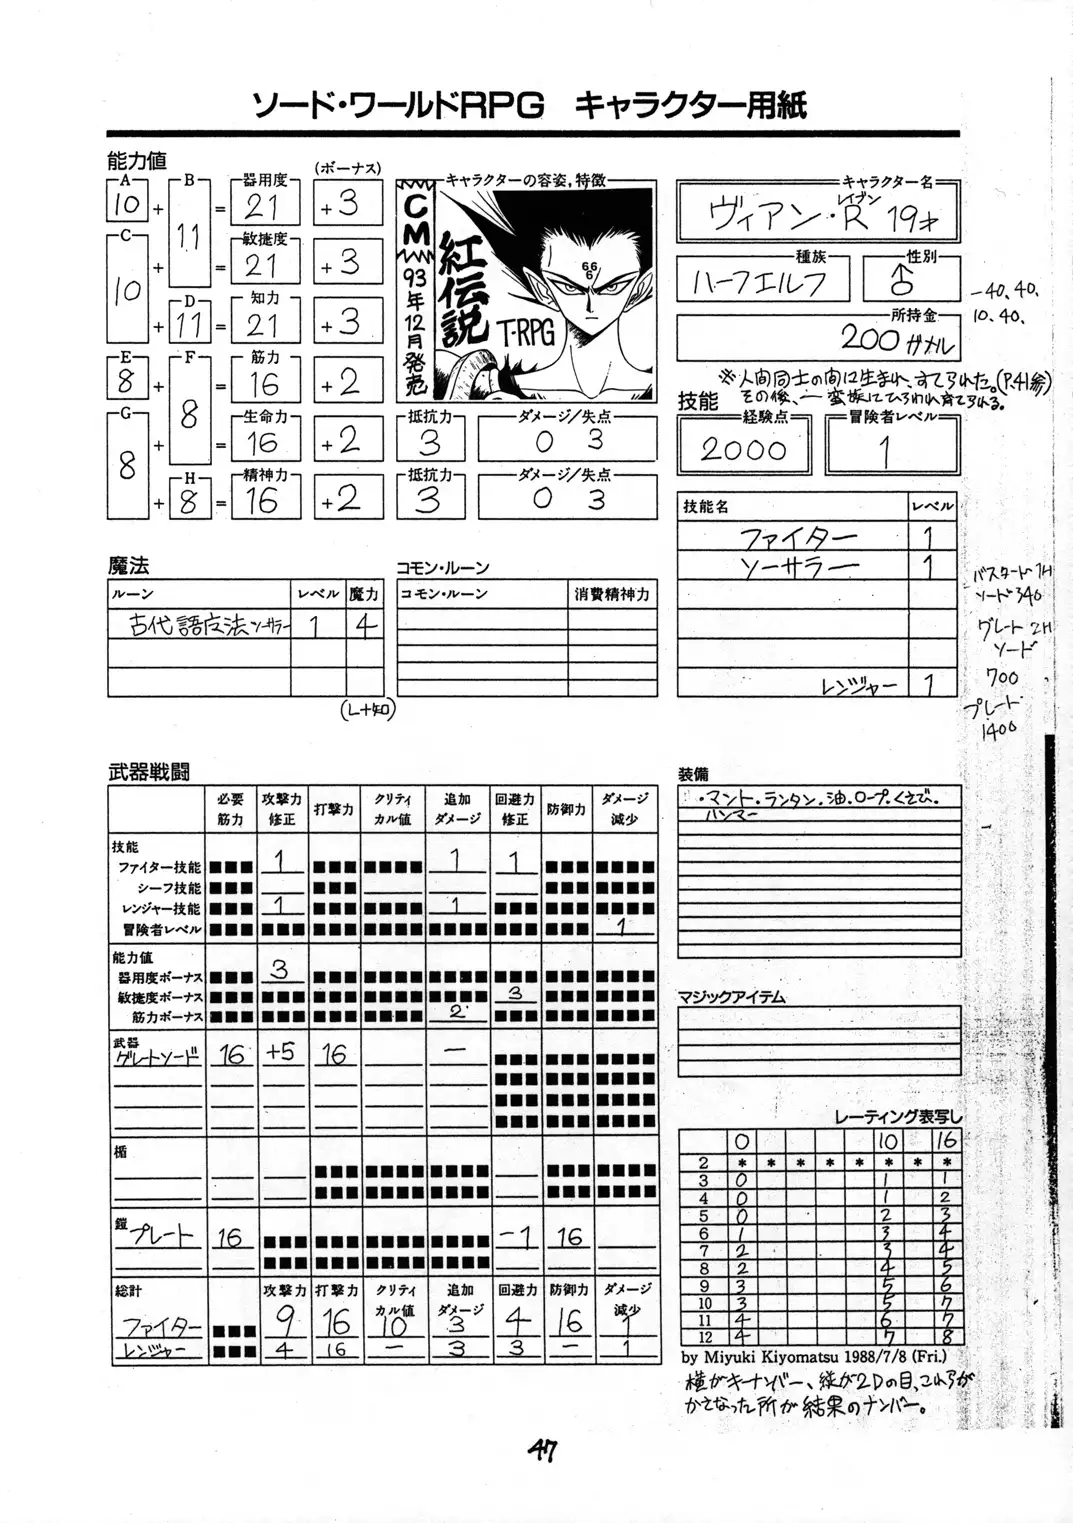 ソード・ワールドRPG キャラクター用紙
能力値
(ボーナス)
A 10 + B 11 = 器用度 21 +3
C 10 + = 敏捷度 21 +3
+ D 11 = 知力 21 +3
E 8 + F 8 = 筋力 16 +2
G 8 + = 生命力 16 +2 抵抗力 3 ダメージ/失点 0 3
+ H 8 = 精神力 16 +2 抵抗力 3 ダメージ/失点 0 3
キャラクターの容姿,特徴
CM
93年12月発売
紅伝説
T-RPG
666
キャラクター名
レイブン
ヴィアン・R 19才
種族 ハーフエルフ
性別 ♂
所持金 200 ガメル
-40、40、
10、40、
※人間同士の間に生まれ、すてられた。(P.41参)
その後、一蛮族にてひろわれ育てられる。
技能
経験点 2000
冒険者レベル 1
技能名 レベル
ファイター 1
ソーサラー 1
レンジャー 1
バスタード 1H
ソード 340
グレート 2H
ソード
700
プレート
1400
魔法
ルーン レベル 魔力
古代語魔法 ソーサラー 1 4
(L+知)
コモン・ルーン
コモン・ルーン 消費精神力
武器戦闘
必要筋力 攻撃力修正 打撃力 クリティカル値 追加ダメージ 回避力修正 防御力 ダメージ減少
技能
ファイター技能 1 1 1
シーフ技能
レンジャー技能 1 1
冒険者レベル 1
能力値
器用度ボーナス 3
敏捷度ボーナス 3
筋力ボーナス 2
武器
グレートソード 16 +5 16 ー
楯
鎧
プレート 16 -1 16
総計 攻撃力 打撃力 クリティカル値 追加ダメージ 回避力 防御力 ダメージ減少
ファイター 9 16 10 3 4 16 1
レンジャー 4 16 ー 3 3 ー 1
装備
・マント・ランタン・油・ロープ・くさび・
ハンマー
マジックアイテム
レーティング表写し
0 10 16
2 * * * * * * * *
3 0 1 1
4 0 1 2
5 0 2 3
6 1 3 4
7 2 3 4
8 2 4 5
9 3 5 6
10 3 5 7
11 4 6 7
12 4 7 8
by Miyuki Kiyomatsu 1988/7/8 (Fri.)
横がキーナンバー、縦が2Dの目、これらが
かさなった所が結果のナンバー。
47